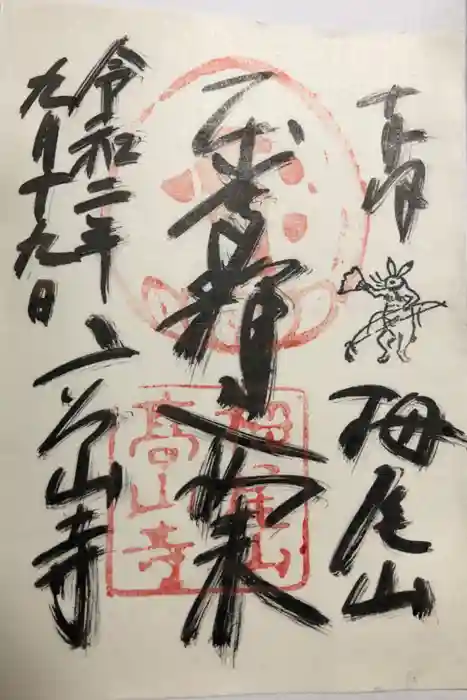 栂尾山
釋迦如来
令和二年
九月十九日
高山寺
栂尾山
高山寺